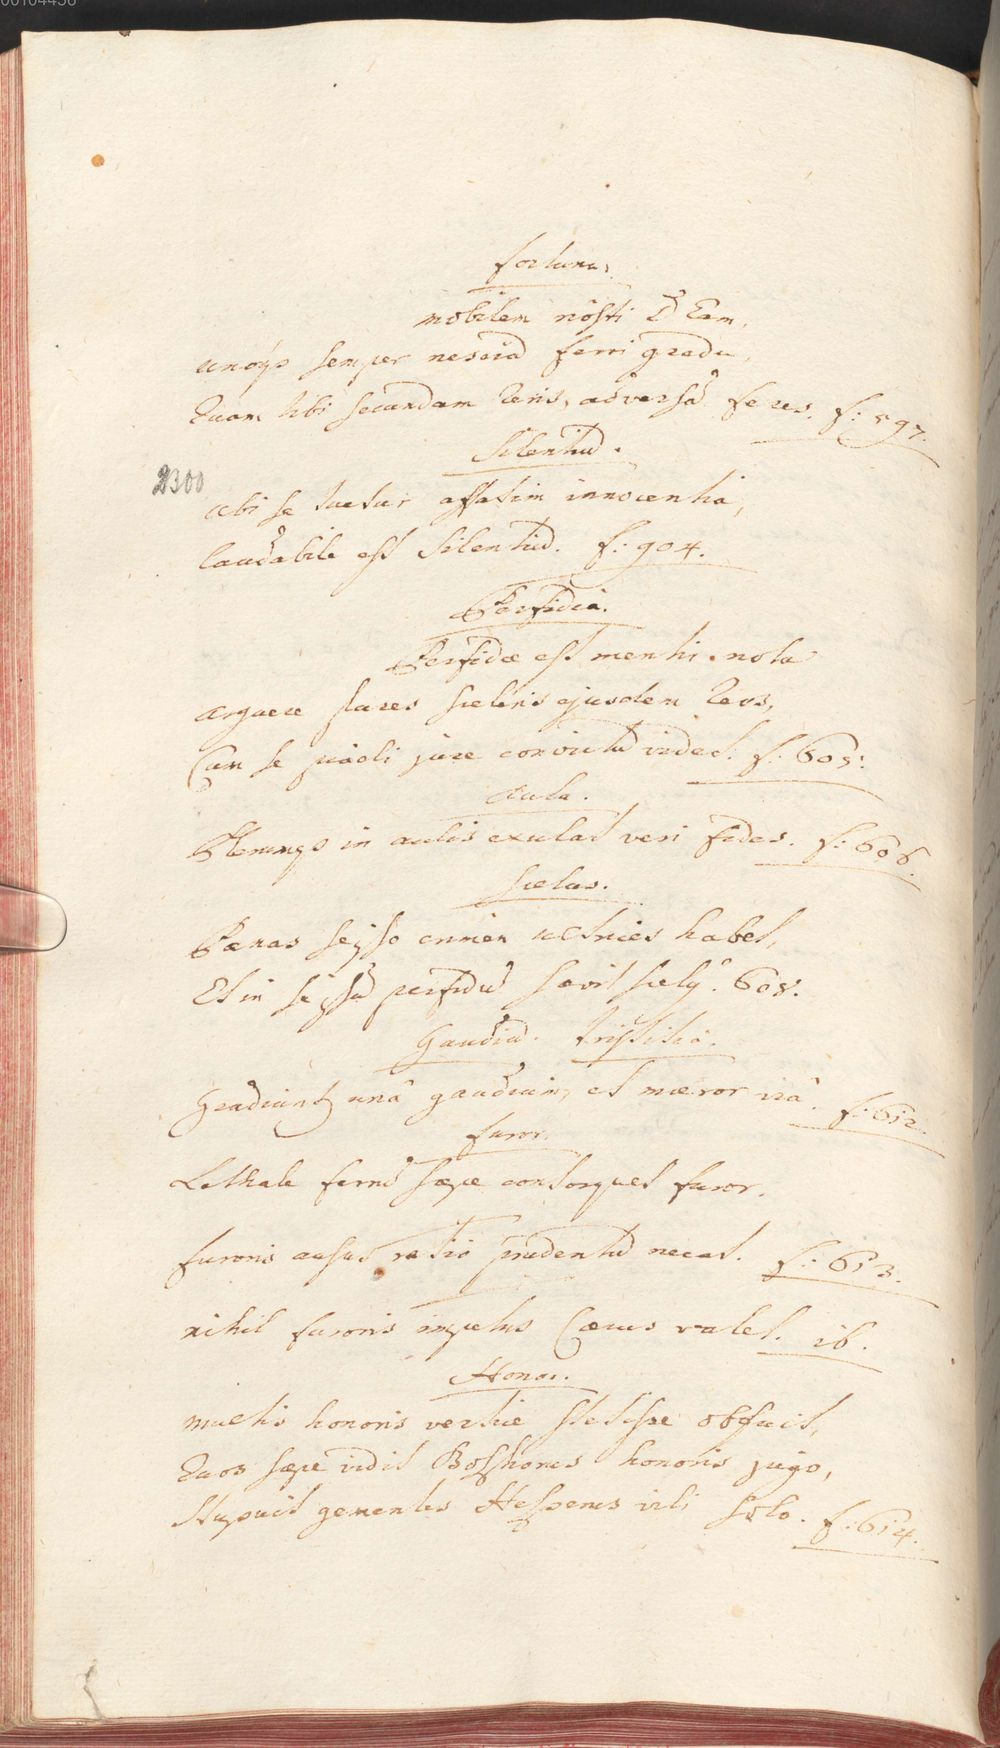 00104456
Fortuna.
mobilem nosti Eam,
unoqs semper nesciā ferri gradu,
Quam tibi secundam senis, adversā feres. f: 597.
Silentiū.
2300
ubi se tuetur affatim innocentia,
laudabile est silentiū. f: 904.
Perfidia.
Perfidæ est mentis nota
arguere plures sceleris ejusdem reos,
Cum se probi jure convictū videt. f: 605.
Aula.
Plerumqs in aulis exulat veri fides. f: 606.
Scelus.
Pænas seipso crimen ultrices habet,
Et in seipsū perfidū sævit scelq. 608.
Gaudiū. Tristitia.
Gradiuntꝫ unâ gaudium, et mæror viâ. f: 612.
Furor.
Lethale ferrū sæpe contorquet furor.
furoris ausus ratio prudentū necat. f: 613.
nihil furoris impetus Cæcus valet. ib.
Honor.
multis honoris vertice stetisse obfuit,
Quos sæpe vidit Bosphorus honoris jugo,
Stupuit gementes Hesperus vili solo. f: 614.